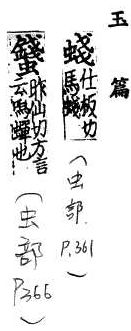 玉篇
䗃 仕板切
馬䗃
(虫部 P.361)
昨仙切方言
云馬蟬也
(虫部 P366)